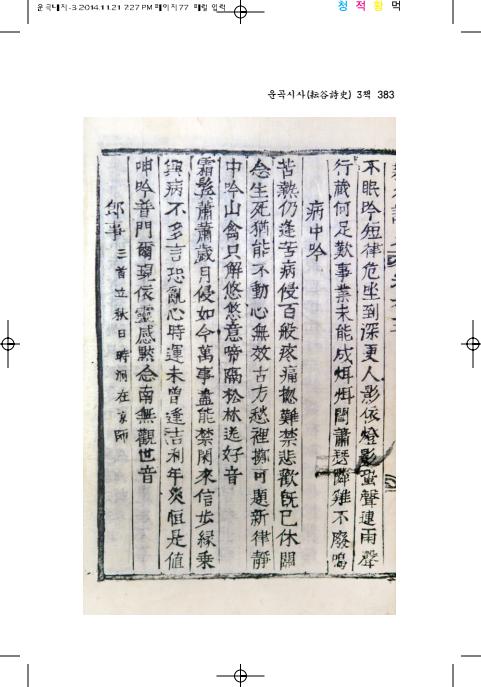 운곡시사-3 2014.11.21 7:27 PM 페이지77 매월 입력
청 적 황 먹
운곡시사(耘谷詩史) 3책 383
不眠吟短律危坐到深更人影依燈影蛩聲連雨聲
行藏何足歎事業未能成煩悶閭蕭瑟隣雞不廢鳴
病中吟
苦熱仍逢苦病侵百般疼痛摠難禁悲歡旣已休關
念生死猶能不動心無效古方愁裡擲可題新律靜
中吟山禽只解悠悠意啼隔松林送好音
霜髭蕭蕭歲月侵如今萬事盡能禁閑來信步緣乗
興病不多言恐亂心時運未曾逢吉利年災恒是値
呻吟普門爾現依靈感黙念南無觀世音
卽事 三首立秋日時洞在京師